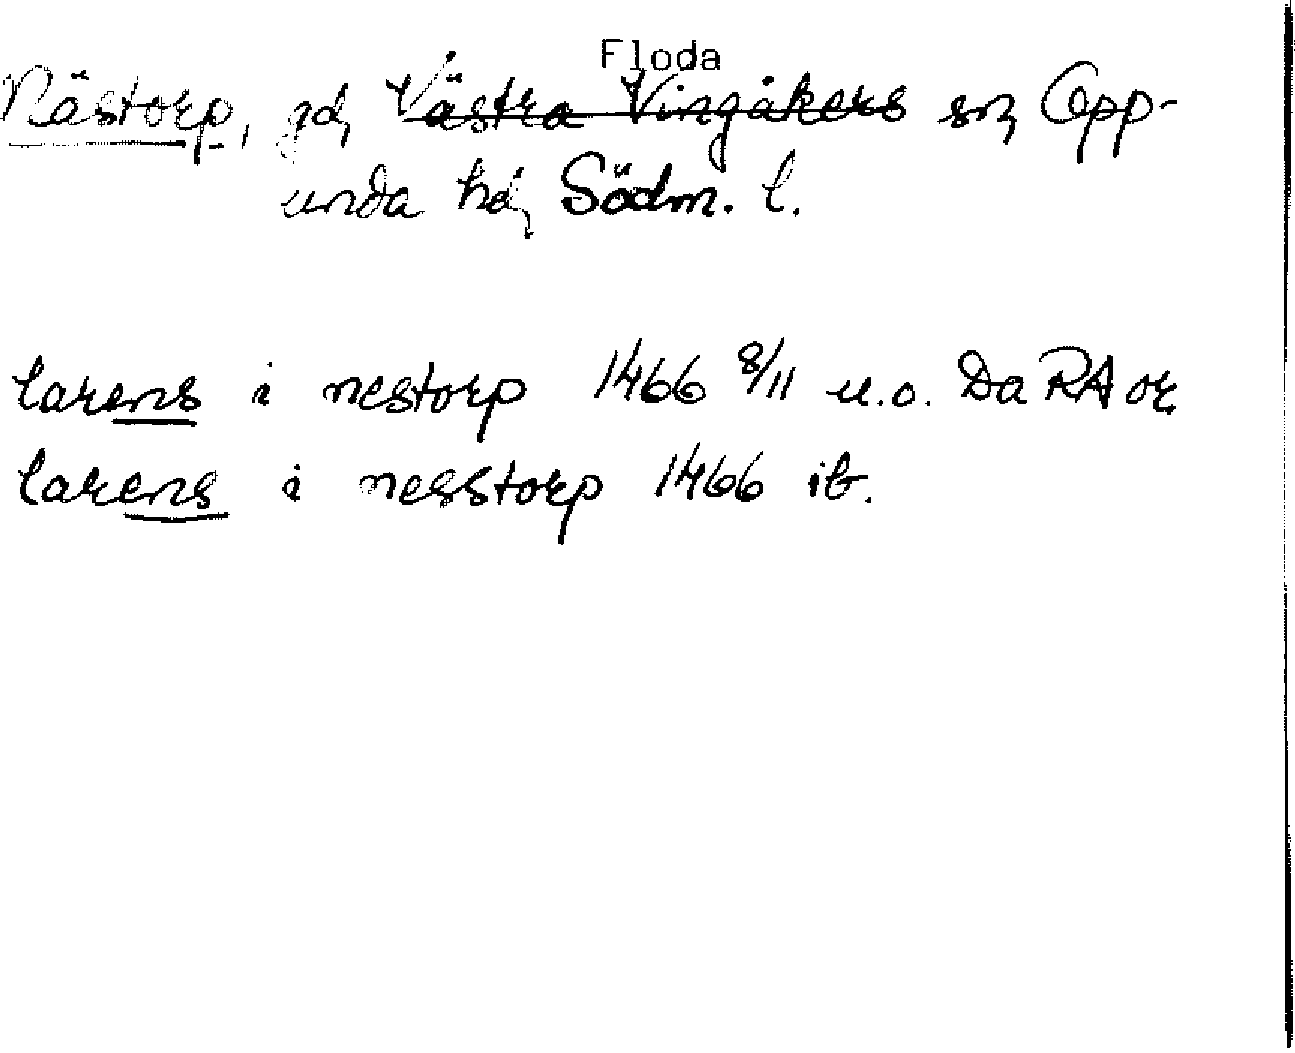 Floda
Nästorp, gd, Västra Vingåkers sn, Opp-
unda hd, Södm. l.
larens i nestorp 1466 8/11 u.o. Da RA or
larens i nesstorp 1466 ib.